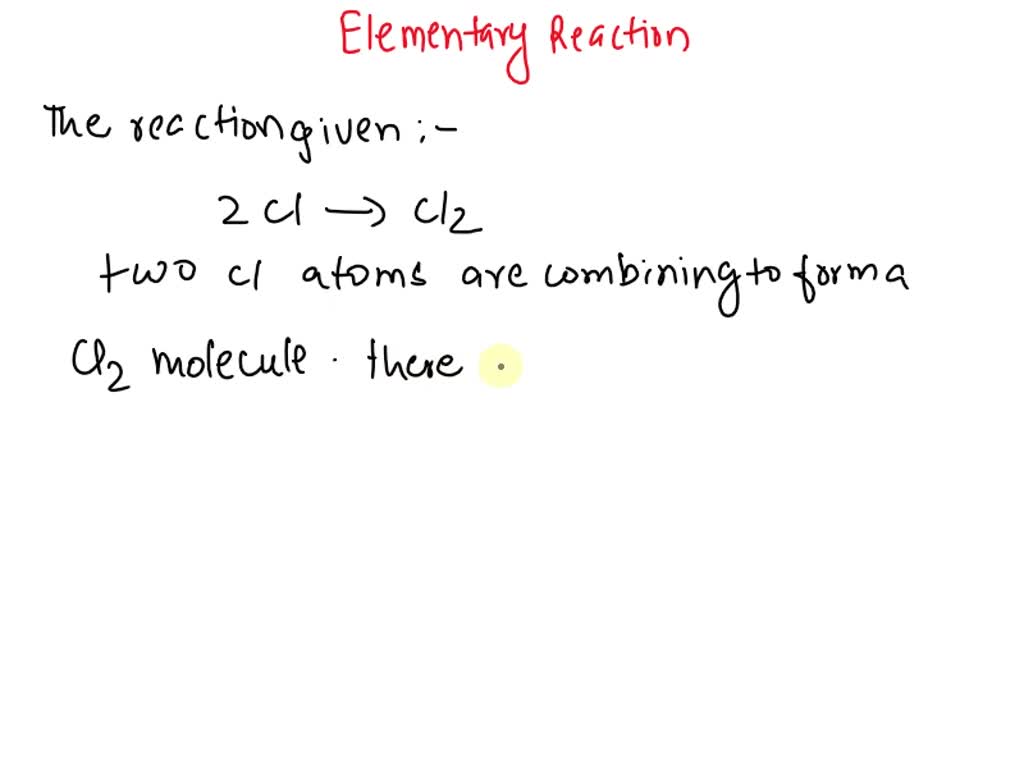 Elementary Reaction
The reaction given :-
2 Cl → Cl2
two cl atoms are combining to form a
Cl2 molecule . there